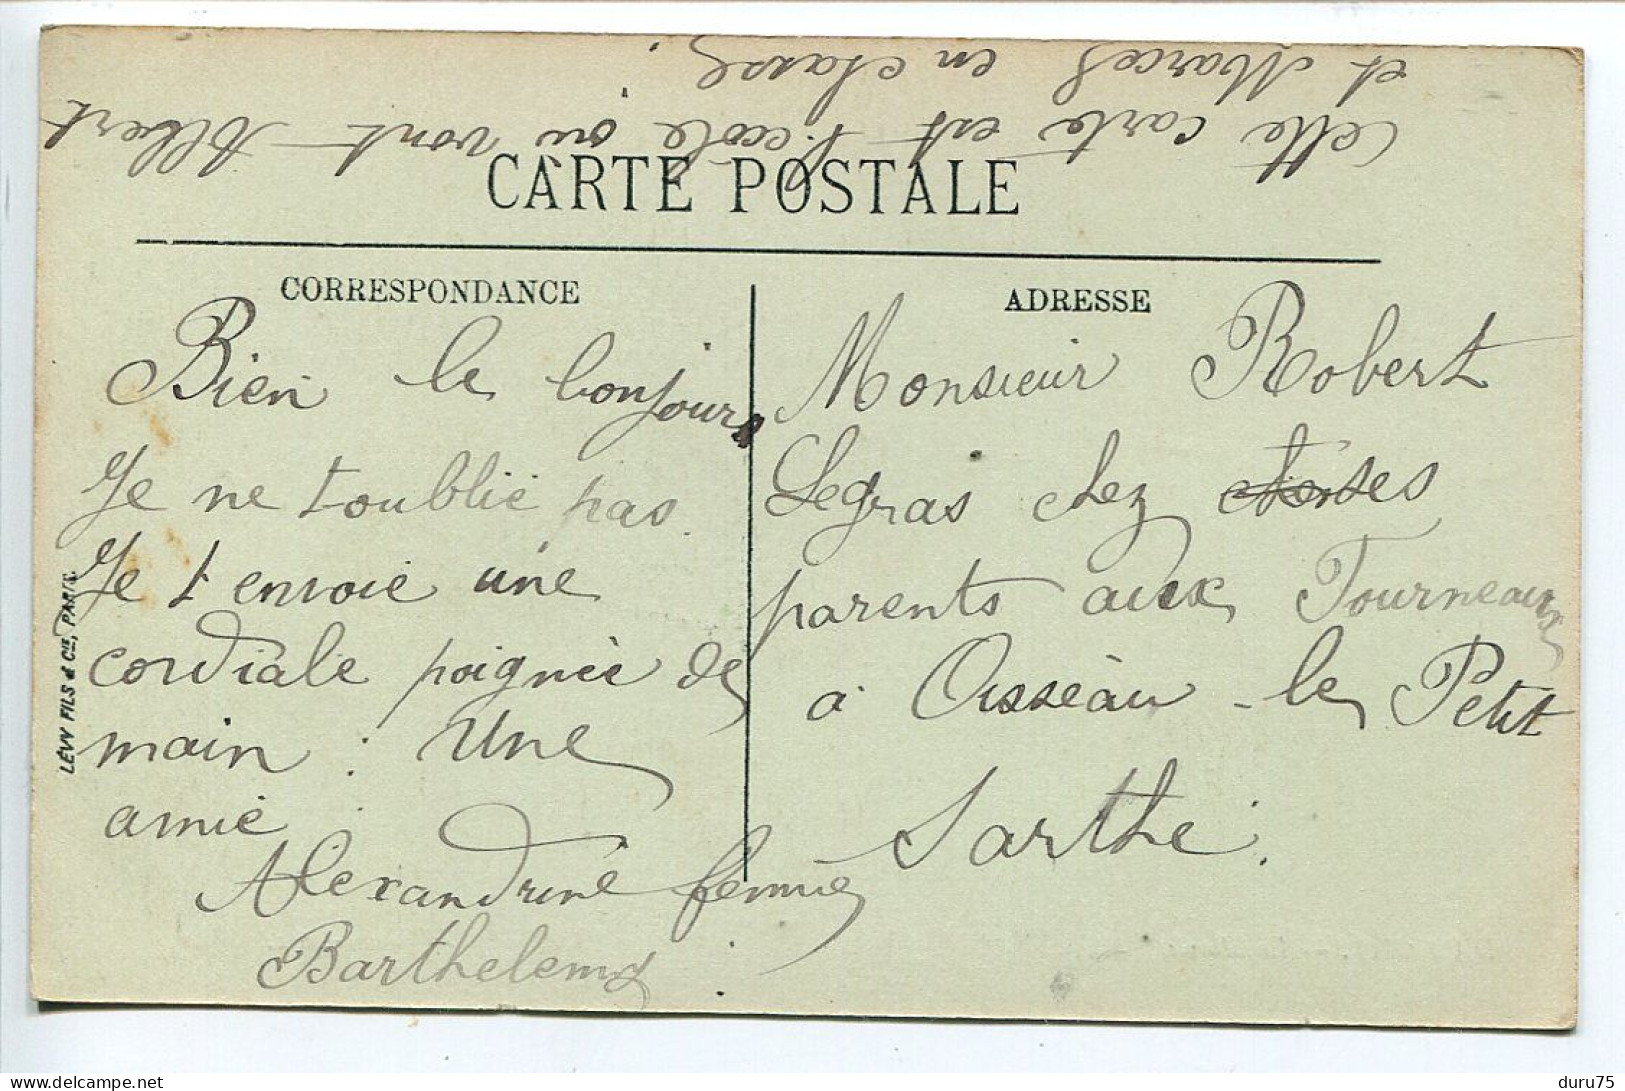 Cette carte est l'ecole ou vont Albert
et Marcel en classe.
CARTE POSTALE
CORRESPONDANCE
Bien le bonjour
Je ne t oublie pas.
Je t envoie une
cordiale poignée de
main : Une
amie
Alexandrine femme
Barthelemy
ADRESSE
Monsieur Robert
Legras chez ses
parents aux Tourneaux
à Oisseau - le Petit
Sarthe.
LÉVY FILS & CIE, PARIS
delcampe.net
duru75